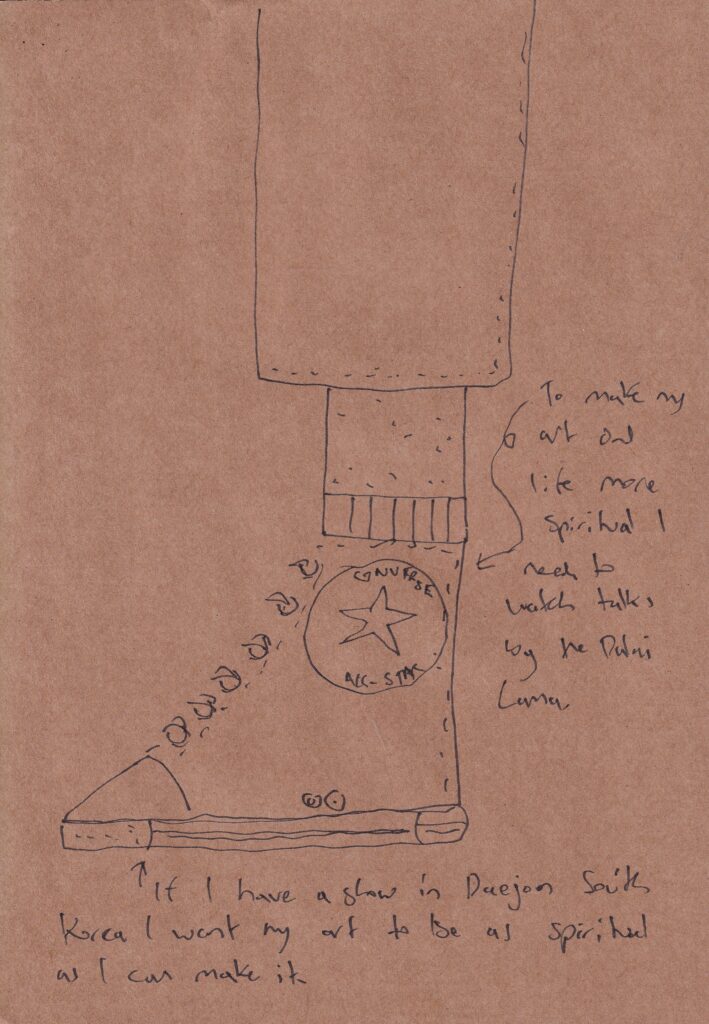 To make my
art and
life more
spiritual I
need to
watch talks
by the Dalai
Lama.
CONVERSE
ALL-STAR
If I have a show in Daejon South
Korea I want my art to be as spiritual
as I can make it.